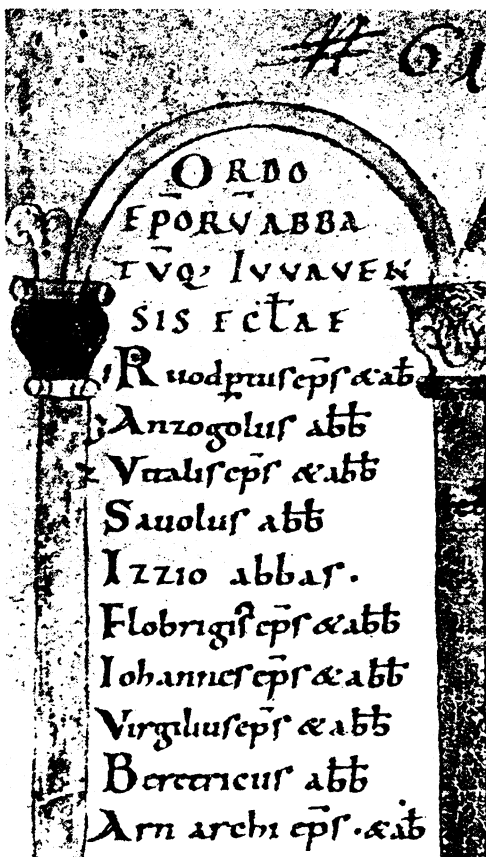 # 61
ORDO
EP̄ORŪ ABBA
TŪQ, IVVAVEN
SIS ECCL̄AE
Ruodꝑtus ep̄s & ab̄b
Anzogolus ab̄b
Vitalis ep̄s & ab̄b
Savolus ab̄b
Izzio abbas.
Flobrigis ep̄s & ab̄b
Iohannes ep̄s & ab̄b
Virgilius ep̄s & ab̄b
Bertricus ab̄b
Arn archi ep̄s . & ab̄